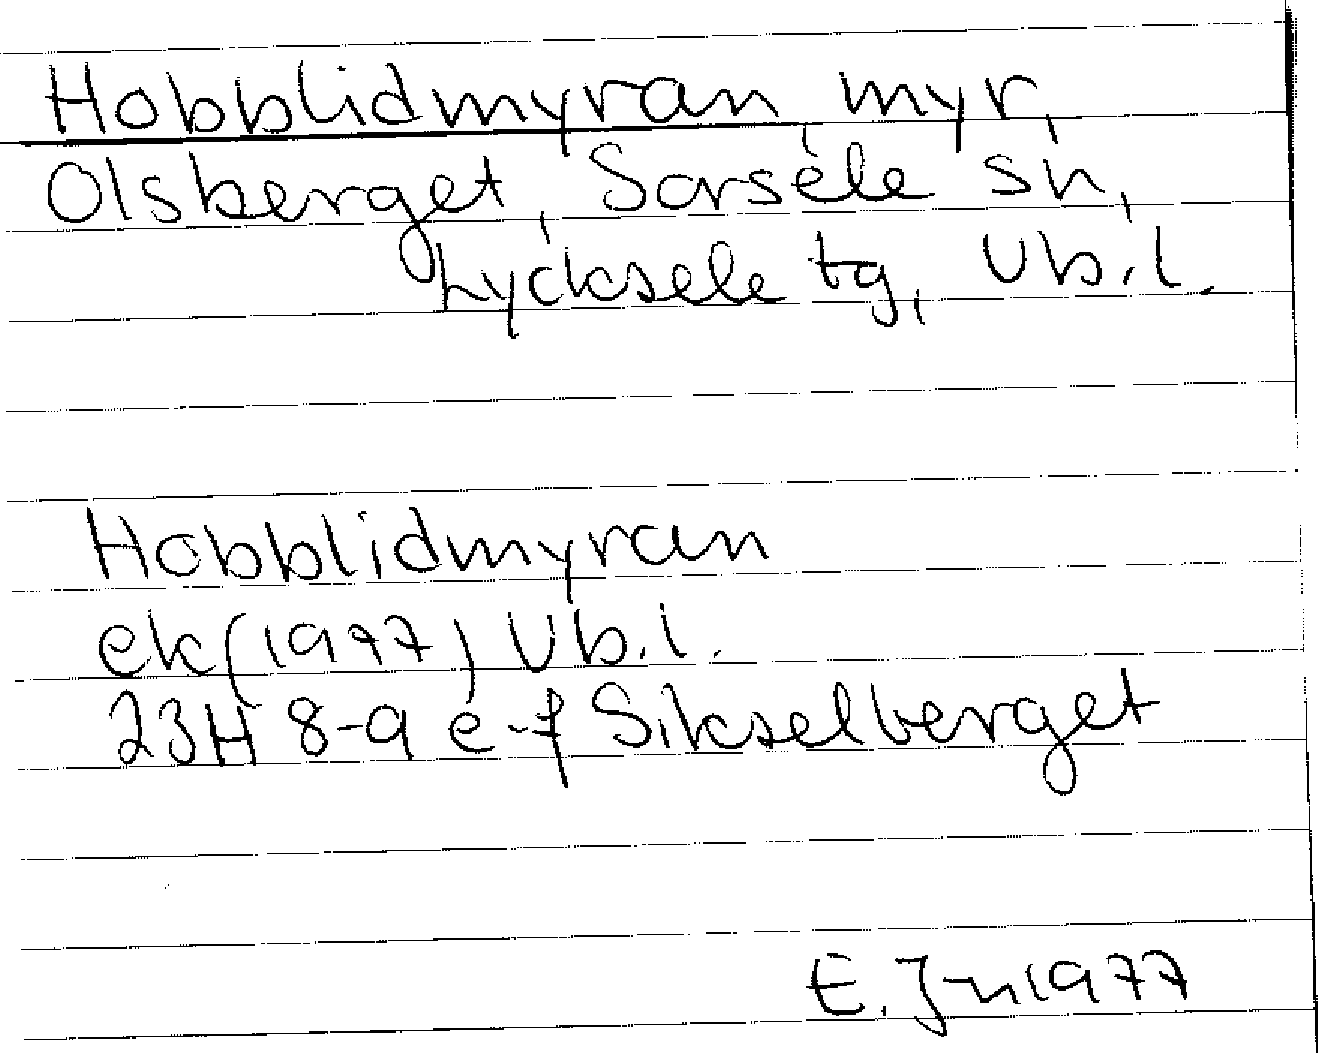 Hobblidmyran myr,
Olsberget, Sorsele sn,
Lycksele tg, Vb.l.
Hobblidmyran
ek (1977) Vb.l.
23H 8-9 e-f Sikselberget
E. J-n 1977